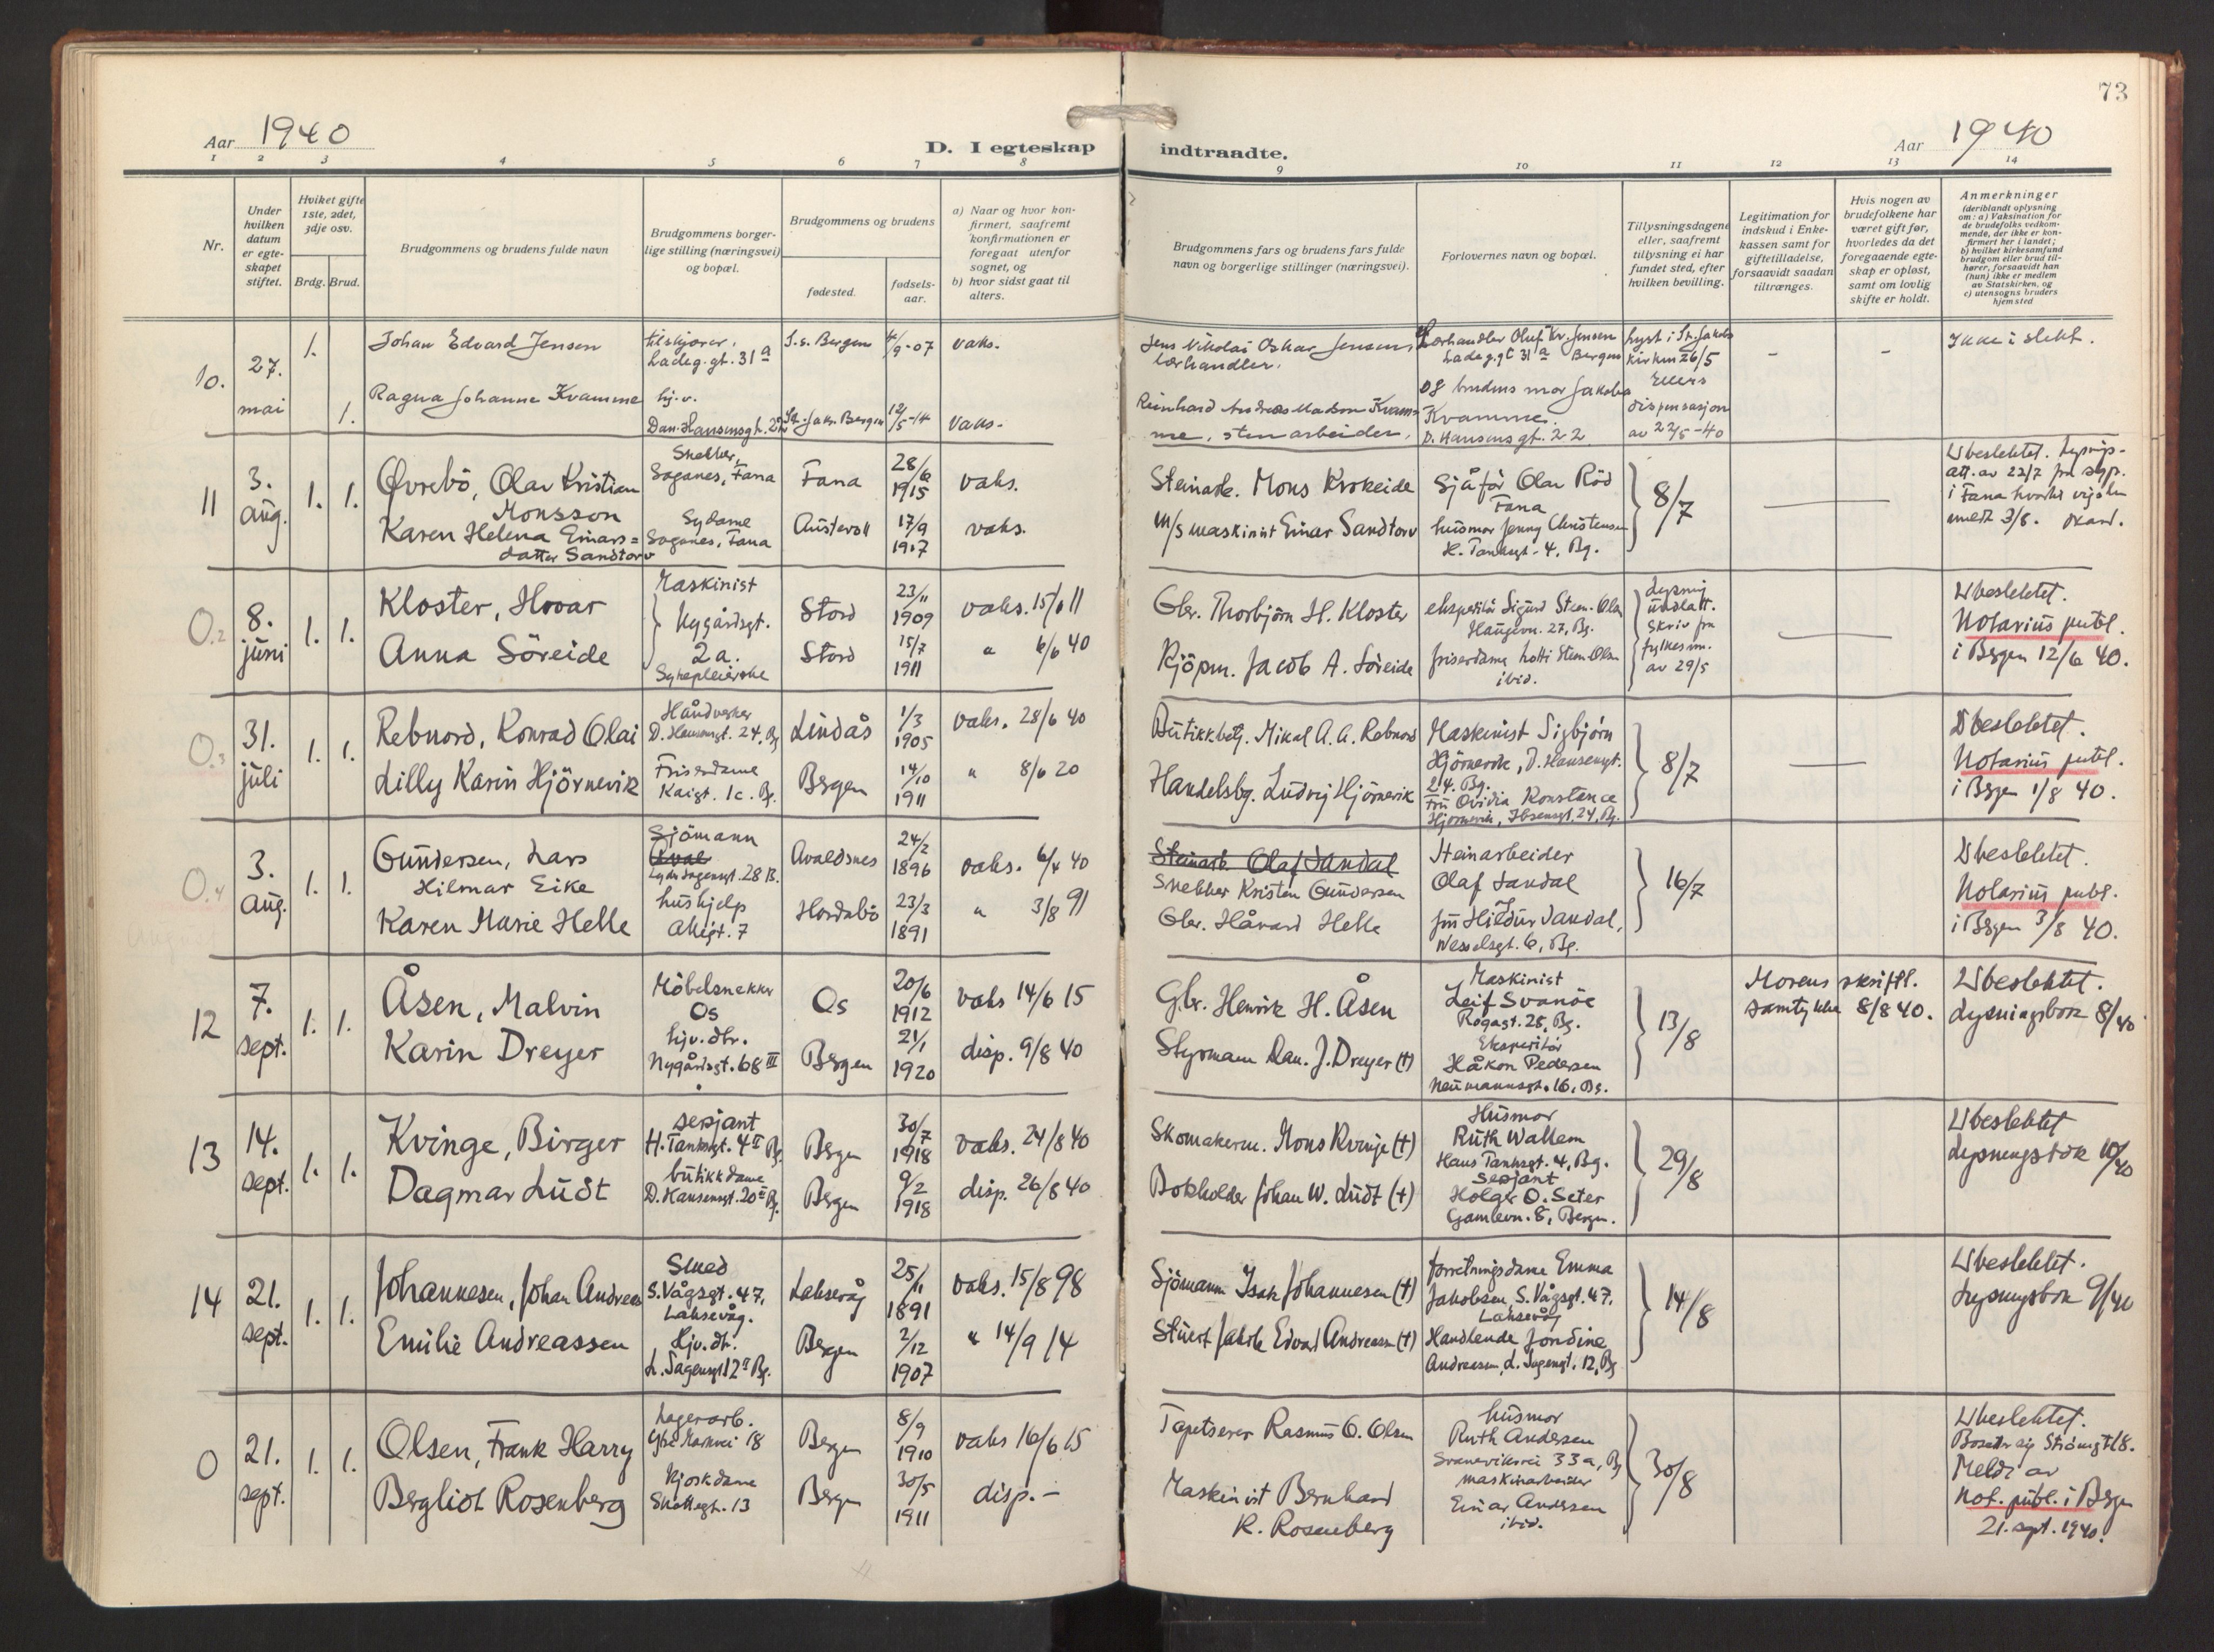 73
Aar 1940
D. I egteskap
indtraadte.
Aar 1940
1 2 3 4 5 6 7 8 9 10 11 12 13 14
Nr.
Under
hvilken
datum
er egte-
skapet
stiftet.
Hvilket gifte
1ste, 2det,
3dje osv.
Brdg. Brud.
Brudgommens og brudens fulde navn
Brudgommens borger-
lige stilling (næringsvei)
og bopæl.
Brudgommens og brudens
fødested.
fødsels-
aar.
a) Naar og hvor kon-
firmert, saafremt
konfirmationen er
foregaat utenfor
sognet, og
b) hvor sidst gaat til
alters.
Brudgommens fars og brudens fars fulde
navn og borgerlige stillinger (næringsvei).
Forlovernes navn og bopæl.
Tillysningsdagene
eller, saafremt
tillysning ei har
fundet sted, efter
hvilken bevilling.
Legitimation for
indskud i Enke-
kassen samt for
giftetilladelse,
forsaavidt saadan
tiltrænges.
Hvis nogen av
brudefolkene har
været gift før,
hvorledes da det
foregaaende egte-
skap er opløst,
samt om lovlig
skifte er holdt.
Anmerkninger
(deriblandt oplysning
om: a) Vaksination for
de brudefolks vedkom-
mende, der ikke er kon-
firmert her i landet;
b) hvilket kirkesamfund
brudgom eller brud til-
hører, forsaavidt han
(hun) ikke er medlem
av Statskirken, og
c) utensogns bruders
hjemsted
10. 27. mai 1. 1.
Johan Edvard Jensen
tilskjærer.
Ladeg. gt. 31 a
S. s. Bergen 4/9-07 vaks.
Jens Nikolai Oskar Jensen,
lærhandler.
Lærhandler Oluf Kr. Jensen
Ladeg. gt 31 a Bergen
lyst i St. Jakobs
kirken 26/5
Ellers
dispensasjon
av 22/5-40
- -
Ikke i slekt.
Ragna Johanne Kvamme
hj.v.
Dan. Hansensgt. 22
St. Jak. Bergen 12/5-14 vaks.
Reinhard Andreas Madsen Kvam-
me, stenarbeider.
og brudens mor Jakoba
Kvamme.
D. Hansens gt. 22
11 3. aug. 1. 1.
Øvrebö, Olav Kristian
Monsson
Snekker,
Søganes, Fana
Fana 28/6 1915 vaks.
Steinarb. Mons Krokeide
Sjåför Olav Röd
Fana
8/7
Ubeslektet. Lysnings-
att. av 22/7 fra sgpr.
i Fana hvorhe vigslen
meldt 3/8.
Karen Helena Einars=
datter Sandtorv
Sydame
Søganes, Fana
Austevoll 17/9 1917 vaks.
M/S maskinist Einar Sandtorv
husmor Jenny Christensen
H. Tanksgt. 4, Bg.
O.2 8. juni 1. 1.
Kloster, Hovar
Maskinist
Nygårdsgt.
2 a.
Stord 23/11 1909 vaks. 15/6 11
Gbr. Thorbjörn H. Kloster
ekspeditör Sigurd Steen-Olsen
Haugevn. 27, Bg.
Lysning
undlatt.
Skriv fra
fylkesm.
av 29/5
Ubeslektet.
Notarius publ.
i Bergen 12/6 40.
Anna Söreide
Sykepleierske
Stord 15/7 1911 " 6/6 40
Kjöpm. Jacob A. Söreide
friserdame Lotti Steen Olsen
ibid.
O.3 31. juli 1. 1.
Rebnord, Konrad Olai
Håndverker
D. Hansensgt. 24, Bg
Lindås 1/3 1905 vaks. 28/6 40
Butikkbetj. Mikal A. A. Rebnord
Maskinist Sigbjörn
Hjörnevik, D. Hansensgt.
24. Bg.
8/7
Ubeslektet.
Notarius publ.
i Bergen 1/8 40.
Lilly Karin Hjörnevik
Friserdame
Kaigt. 1c. Bg.
Bergen 14/10 1911 " 8/6 20
Handelsbg. Ludvig Hjörnevik
Fru Ovidia Konstance
Hjörnevik, Ibsensgt. 24, Bg.
O.4 3. aug. 1. 1.
Gundersen, Lars
Hilmar Eike
Sjömann
Aval
Lyder Sagensgt. 28 B.
Avaldsnes 24/2 1896 vaks. 6/4 40
Steinarb. Olaf Sandal
Snekker Kristen Gundersen
Steinarbeider
Olaf Sandal
16/7
Ubeslektet.
Notarius publ.
i Bergen 3/8 40.
Karen Marie Helle
hushjelp
Allégt. 7
Hordabö 23/3 1891 " 3/8 91
Gbr. Håvard Helle
fru Hildur Sandal,
Wesselsgt. 6, Bg.
12 7. sept. 1. 1.
Åsen, Malvin
Möbelsnekker
Os
Os 20/6 1912 vaks 14/6 15
Gbr. Henrik H. Åsen
Maskinist
Leif Svanöe
Rogagt. 28, Bg.
13/8
Morens skriftl.
samtykke 8/8 40.
Ubeslektet.
Lysningsbok 8/40
Karin Dreyer
hjv. dtr.
Nygårdsgt. 68 III
Bergen 21/1 1920 disp. 9/8 40
Styrmann Dan. J. Dreyer (†)
Ekspeditör
Håkon Pedersen
Neumannsgt. 16, Bg.
13 14. sept. 1. 1.
Kvinge, Birger
sersjant
H. Tanksgt. 4 II Bg.
Bergen 30/7 1918 vaks. 24/8 40
Skomakerm. Mons Kvinge (†)
Husmor
Ruth Wallem
Hans Tanksgt. 4, Bg.
29/8
Ubeslektet
Lysningsbok 10/40
Dagmar Ludt
butikkdame
D. Hansensgt. 20 II Bg.
Bergen 9/2 1918 disp. 26/8 40
Bokholder Johan W. Ludt (†)
Sersjant
Holger O. Seter
Gamlevn. 8, Bergen.
14 21. sept. 1. 1.
Johannesen, Johan Andreas
Smed
S. Vågsgt. 47,
Laksevåg.
Laksevåg 25/11 1891 vaks. 15/8 98
Sjömann Isak Johannesen (†)
Forretningsdame Emma
Jakobsen, S. Vågsgt. 47,
Laksevåg
14/8
Ubeslektet.
Lysningsbok 9/40
Emilie Andreassen
Hjv. dt.
L. Sagensgt 12 a Bg.
Bergen 2/12 1907 " 14/9 14
Stuert Jakob Edvard Andreassen (†)
Handlende Jondine
Andreassen, L. Sagensgt. 12, Bg
O 21. sept. 1. 1.
Olsen, Frank Harry
Lagerarb.
18
Bergen 8/9 1910 vaks 16/6 15
Tapetserer Rasmus O. Olsen
husmor
Ruth Andersen
Svaneviksvei 33a, Bg
30/8
Ubeslektet.
Bosetter sig Strömgt 18.
Meldt av
Not. publ. i Bergen
21. sept. 1940.
Bergliot Rosenberg
Kjoskdame
13
Bergen 30/5 1911 disp. -
Maskinist Bernhard
R. Rosenberg
maskinarbeider
Einar Andersen
ibid.